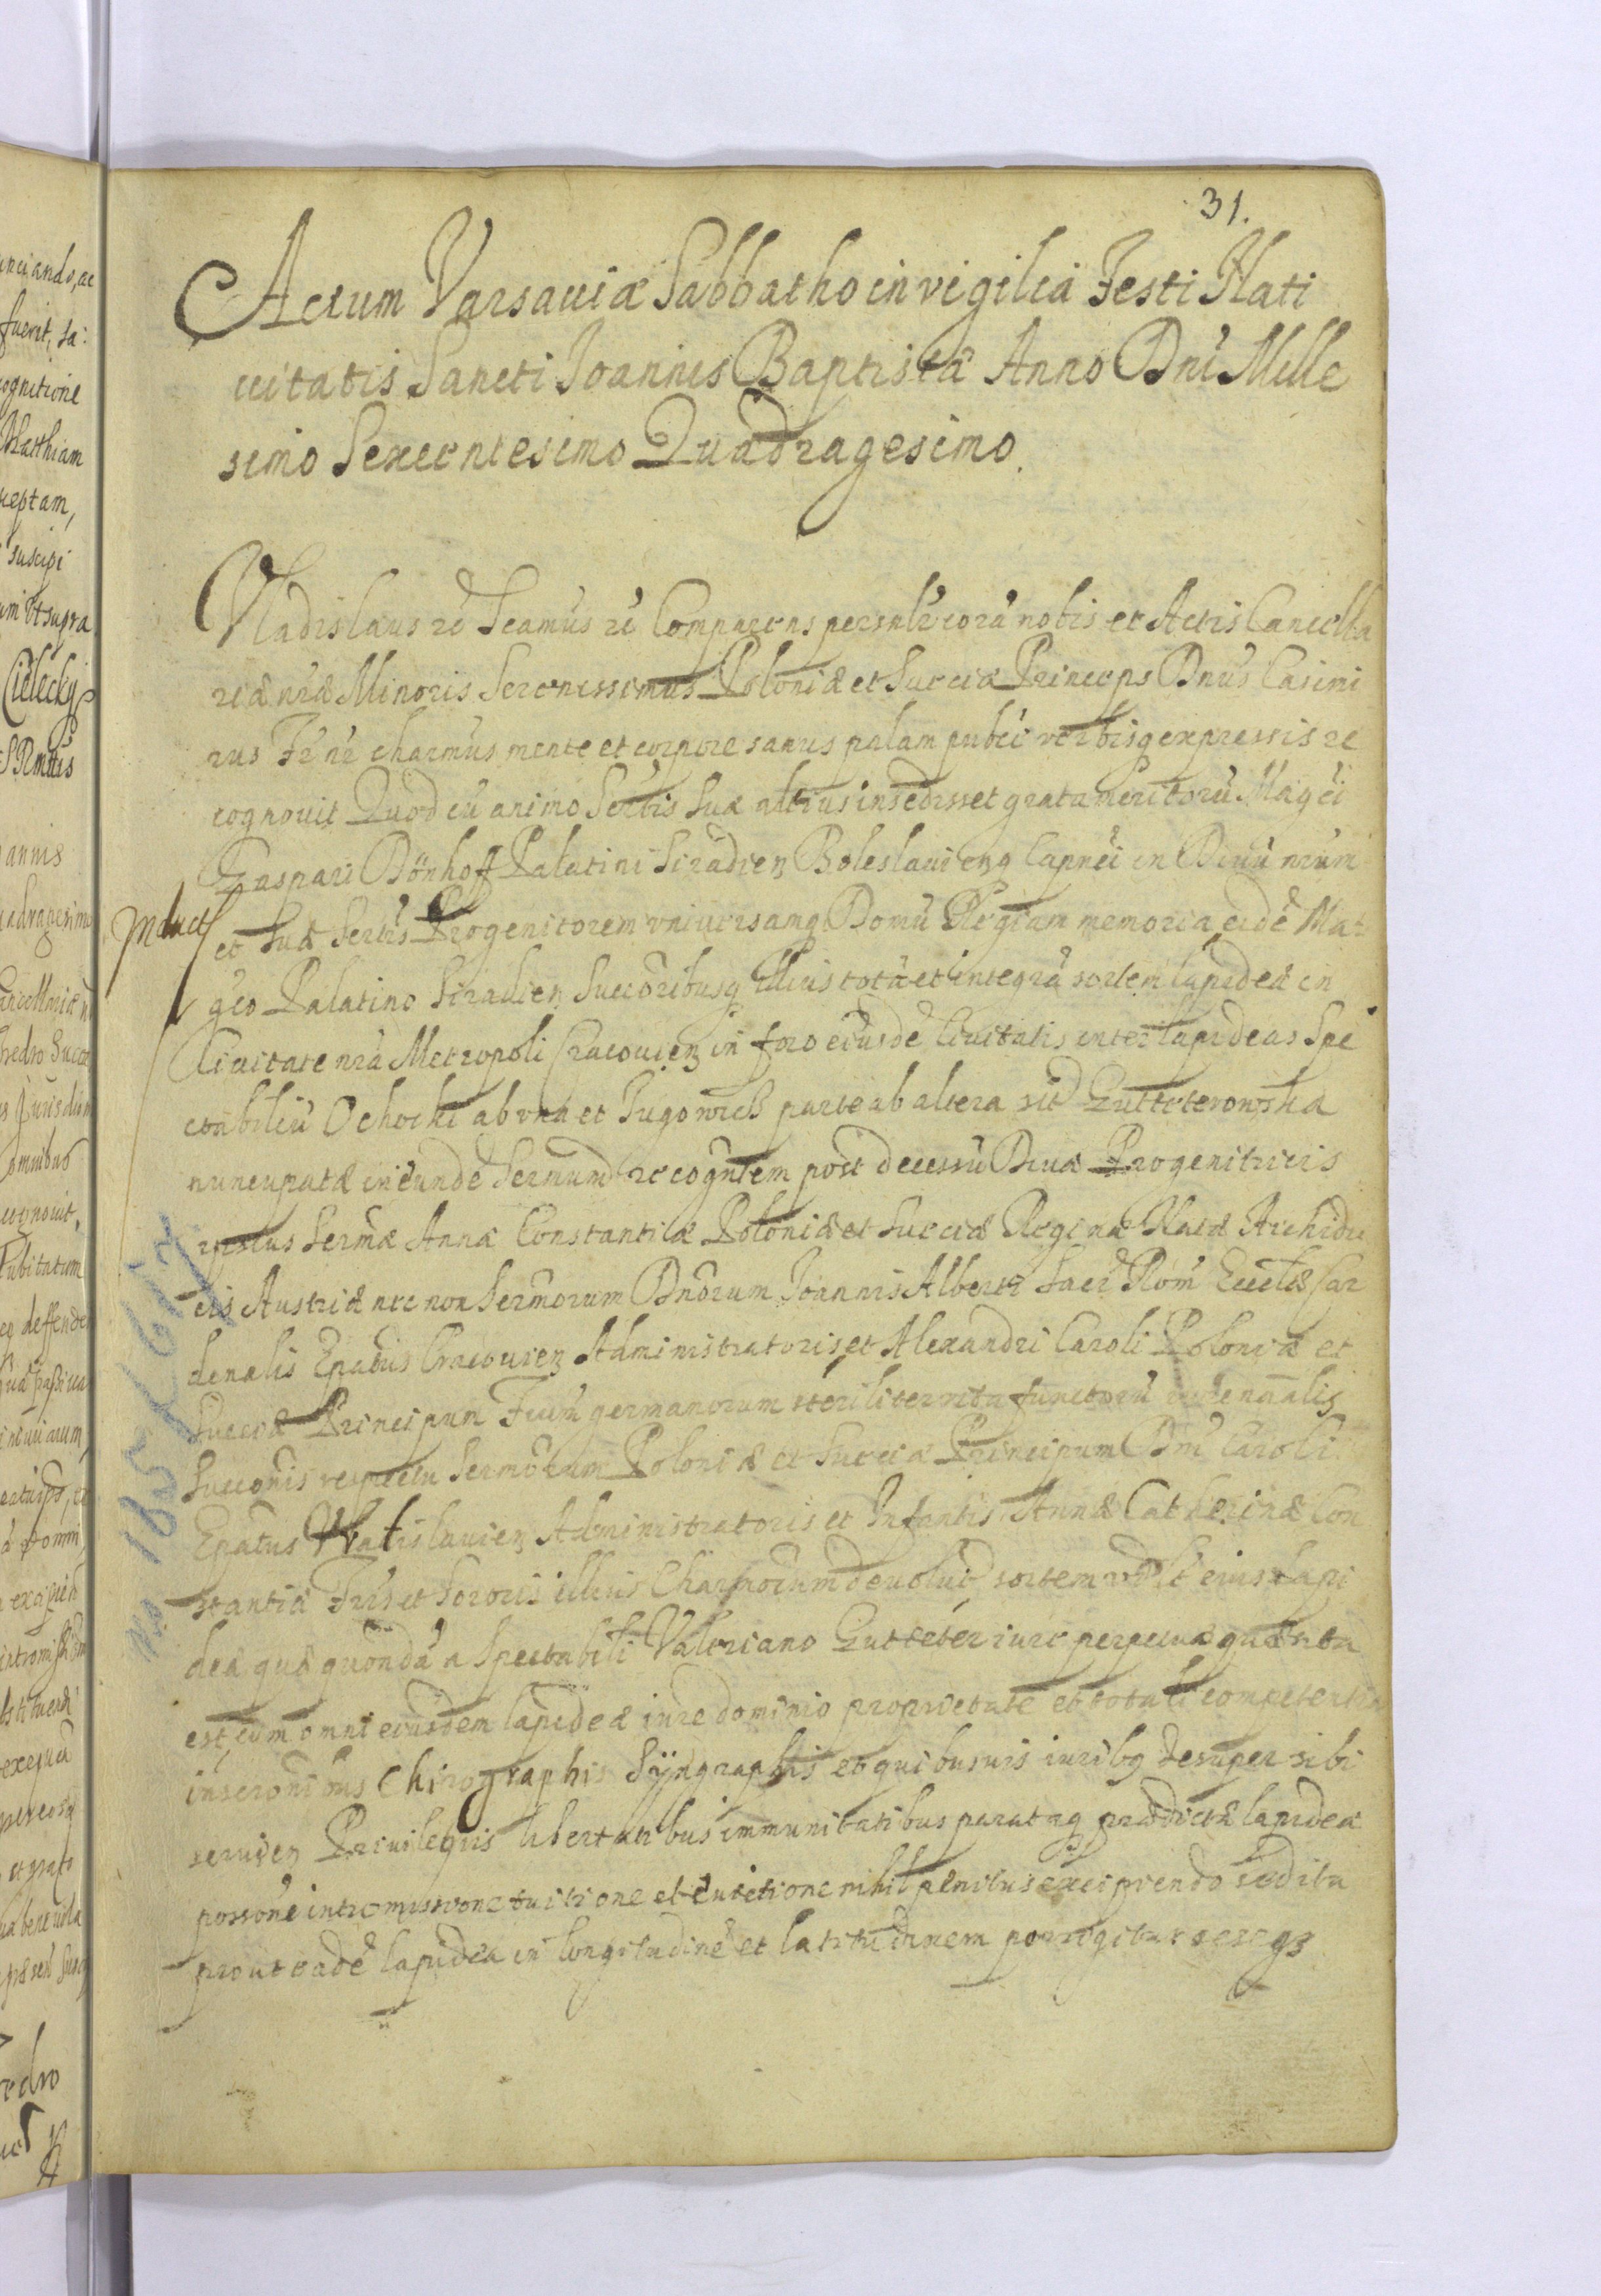 31.
Actum Varsauiæ Sabbatho in vigilia Festi Nati
uitatis Sancti Joannis Baptistæ Anno Dni Mille
simo Sexcentesimo Quadragesimo.
Vladislaus &c Scamus &c Comparens persnlr corã nobis et Actis Cancella
riæ nrã Minoris Serenissimus Poloniæ et Sueciæ Princeps Dnus Casimi
rus Fr nr charmus mente et corpore sanus palam publi verbisq expressis re
cognouit Quod cũ animo Sertis Suæ altius insedisset grata meritorũ Magci
Gaspari Dönhoff Palatini Siradien Boleslauienq Capnei in Diuũ nrum
et Suæ Sertis Progenitorem vniuersamq Domũ Regiam memoria eidẽ Ma
gco Palatino Siradien Succoribusq illius totã et integrã sortem lapideæ in
Ciuitate nrã Metropoli Cracouien in foro eiusdẽ Ciuitatis inter lapideas Spe
ctabiliũ Ochocki ab vna et Jugowicß parte ab altera sit Gutteterowska
nuncupatæ in eundẽ Sermum recogntem post decessũ Diuæ Progenitricis
ipsius Sermæ Annæ Constantiæ Poloniæ et Sueciæ Reginæ Natæ Archidu
cis Austriæ nec non Sermorum Dnorum Joannis Alberti Sacr Rom Eccliæ Car
denalis Epatus Cracouien Administratoris et Alexandri Caroli Poloniæ et
Sueciæ Principum Frum germanorum steriliter vita functorũ
Succonis respectu Sermorum Poloniæ et Sueciæ Principum Dni Caroli
Epatus Wratislauien Administratoris et Infantis Annæ Catherinæ Con
stantiæ Fris et Sororis illius Charmorum deuolut sortem vdlt eius lapi
deæ quæ quondã a Spectabili Valeriano Gutteter iure perpetuo quæsita
est cum omni eiusdem lapideæ iure dominio proprietate et totali competentia
inscronibus Chirographis Sÿngraphis et quibusuis iuribq desuper sibi
seruien Priuilegiis libertatibus immunitatibus parataq prædictæ lapideæ
possone intromissione tuitione et euictione nihil penitus excipiendo sed ita
prout eadẽ lapidea in longitudinẽ et latitudinem porrigitur